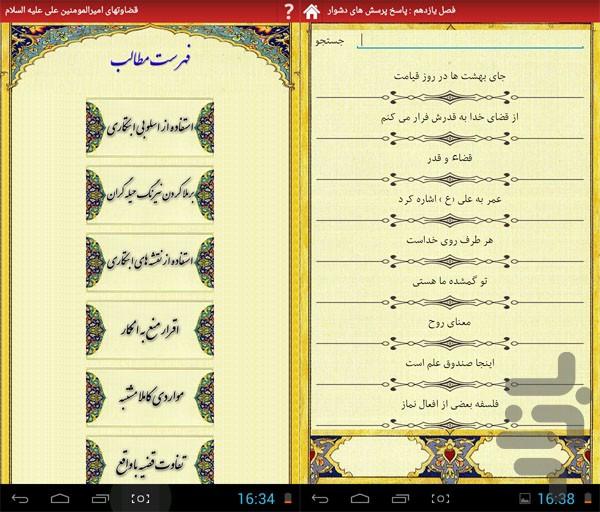 قضاوتهای امیرالمومنین علی علیه السلام
?
فهرست مطالب
استفاده از اسلوبی ابتکاری
برملا کردن نیرنگ حیله گران
استفاده از نقشه های ابتکاری
اقرار منع به انکار
مواردی کاملا مشبه
تفاوت قضیه با واقع
16:34
فصل یازدهم : پاسخ پرسش های دشوار
جستجو
جای بهشت ها در روز قیامت
از قضای خدا به قدرش فرار می کنم
قضاء و قدر
عمر به علی (ع ) اشاره کرد
هر طرف روی خداست
تو گمشده ما هستی
معنای روح
اینجا صندوق علم است
فلسفه بعضی از افعال نماز
بازار
16:38